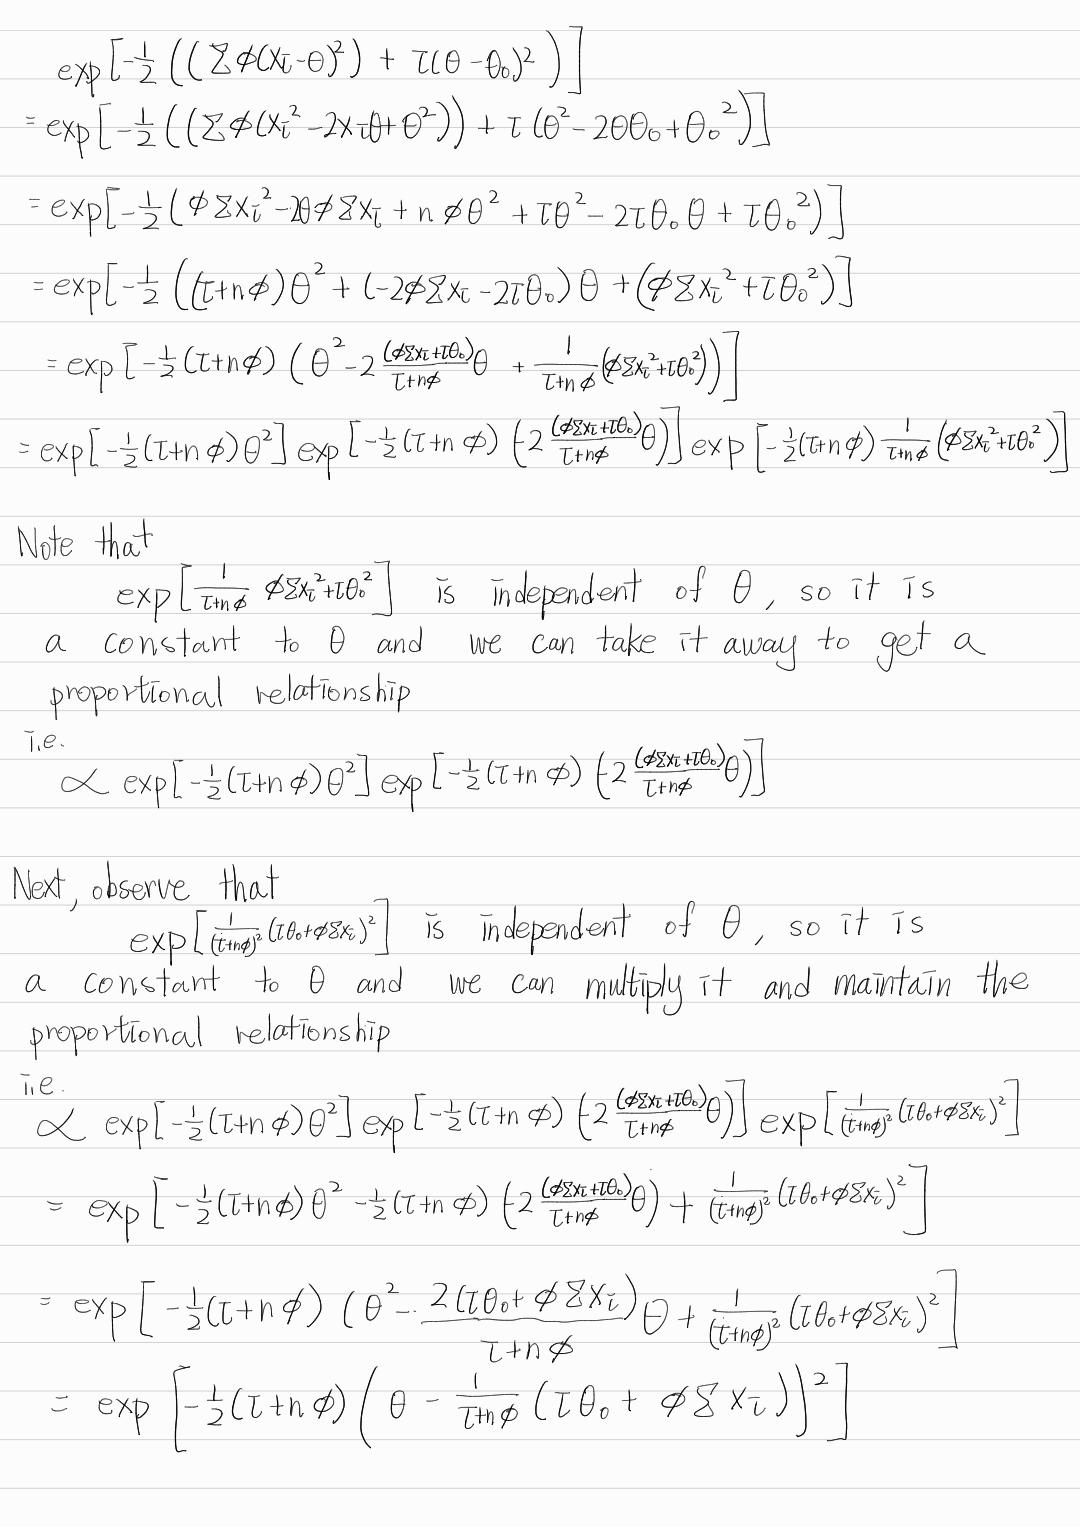 exp[-½((Σϕ(xᵢ-θ)²) + τ(θ-θ₀)²)]
= exp[-½((Σϕ(xᵢ²-2xᵢθ+θ²)) + τ(θ²-2θθ₀+θ₀²)]
= exp[-½(ϕΣxᵢ²-2θϕΣxᵢ + nϕθ² + τθ² - 2τθ₀θ + τθ₀²)]
= exp[-½((τ+nϕ)θ² + (-2ϕΣxᵢ-2τθ₀)θ + (ϕΣxᵢ²+τθ₀²)]
= exp[-½(τ+nϕ)(θ²-2 (ϕΣxᵢ+τθ₀)/(τ+nϕ) θ + 1/(τ+nϕ) (ϕΣxᵢ²+τθ₀²))]
= exp[-½(τ+nϕ)θ²] exp[-½(τ+nϕ)(-2 (ϕΣxᵢ+τθ₀)/(τ+nϕ) θ)] exp[-½(τ+nϕ) 1/(τ+nϕ) (ϕΣxᵢ²+τθ₀²)]
Note that
exp[1/(τ+nϕ) ϕΣxᵢ²+τθ₀²] is independent of θ, so it is
a constant to θ and we can take it away to get a
proportional relationship
i.e.
∝ exp[-½(τ+nϕ)θ²] exp[-½(τ+nϕ)(-2 (ϕΣxᵢ+τθ₀)/(τ+nϕ) θ)]
Next, observe that
exp[1/(τ+nϕ)² (τθ₀+ϕΣxᵢ)²] is independent of θ, so it is
a constant to θ and we can multiply it and maintain the
proportional relationship
i.e.
∝ exp[-½(τ+nϕ)θ²] exp[-½(τ+nϕ)(-2 (ϕΣxᵢ+τθ₀)/(τ+nϕ) θ)] exp[1/(τ+nϕ)² (τθ₀+ϕΣxᵢ)²]
= exp[-½(τ+nϕ)θ² -½(τ+nϕ)(-2 (ϕΣxᵢ+τθ₀)/(τ+nϕ) θ) + 1/(τ+nϕ)² (τθ₀+ϕΣxᵢ)²]
= exp[-½(τ+nϕ)(θ² - 2(τθ₀+ϕΣxᵢ)/(τ+nϕ) θ + 1/(τ+nϕ)² (τθ₀+ϕΣxᵢ)²]
= exp[-½(τ+nϕ)(θ - 1/(τ+nϕ) (τθ₀ + ϕΣxᵢ))²]